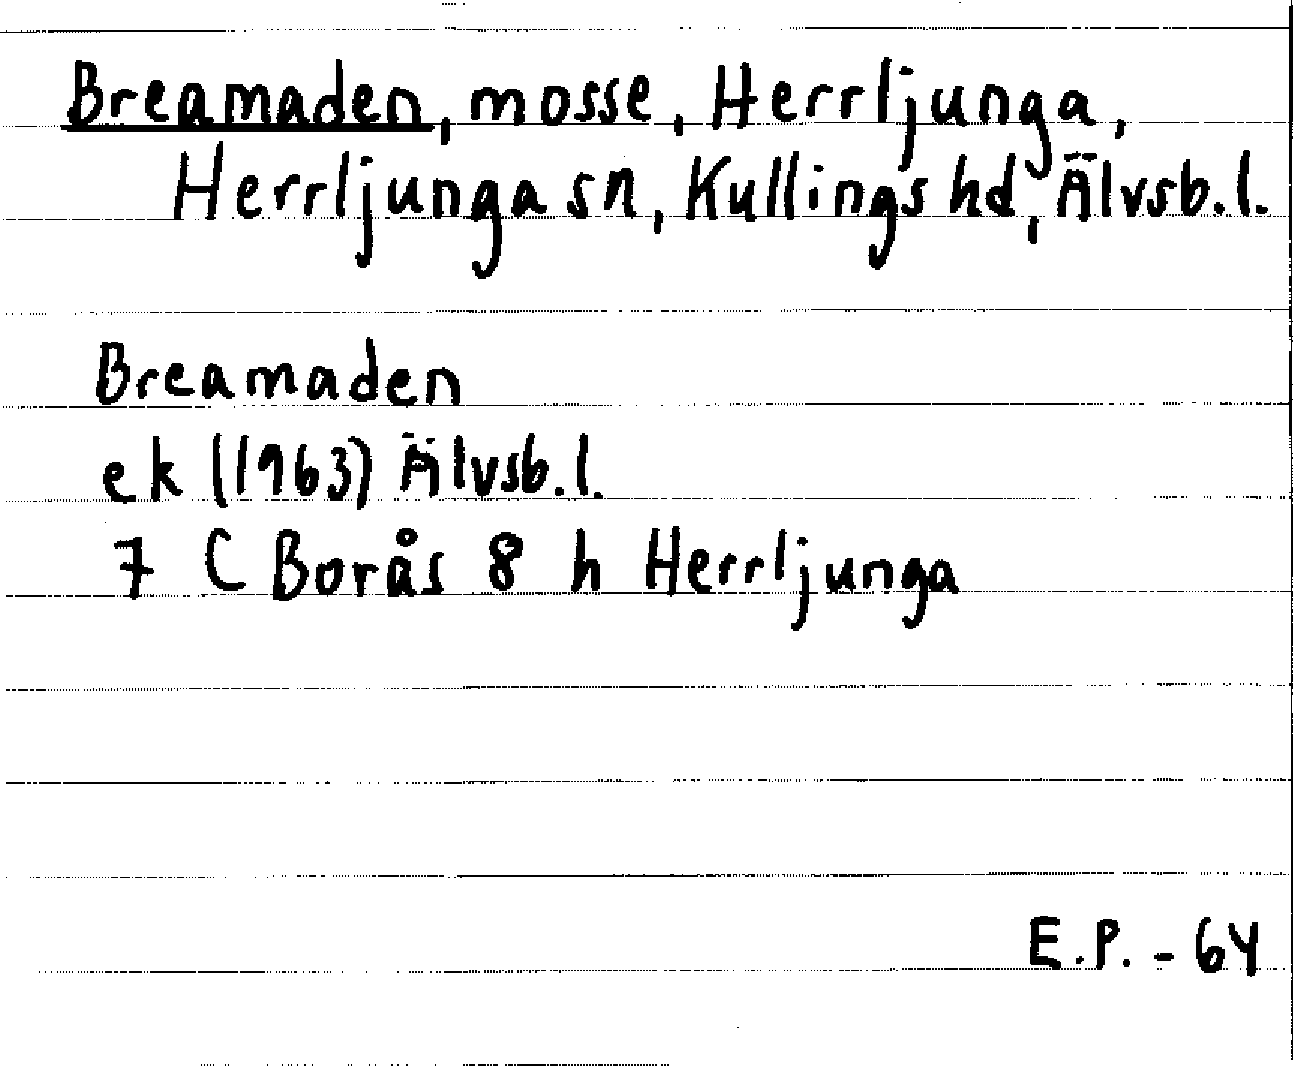 Breamaden, mosse, Herrljunga,
Herrljunga sn, Kullings hd, Älvsb. l.
Breamaden
ek (1963) Älvsb. l.
7 C Borås 8 h Herrljunga
E.P. - 64